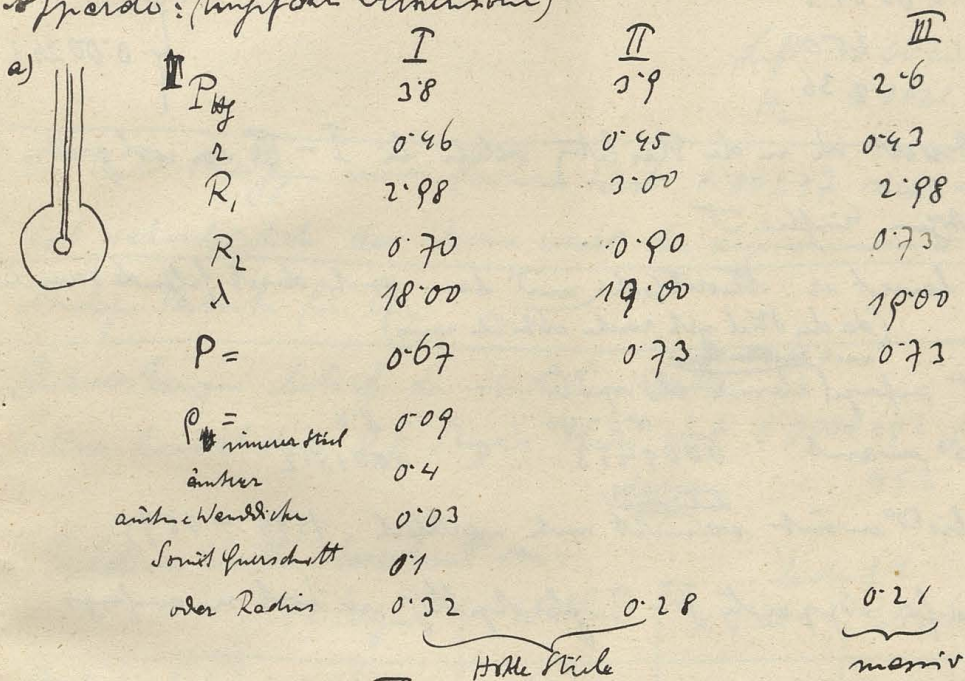 Apparate: (ungefähr
I II III
a) P_Hg 3·8 3·9 2·6
r 0·46 0·45 0·43
R₁ 2·98 3·00 2·98
R₂ 0·70 0·90 0·73
λ 18·00 19·00 19·00
P = 0·67 0·73 0·73
ρ = innerer Stiel 0·09
äußerer 0·4
äußere Wanddicke 0·03
Somit Querschnitt 0·1
oder Radius 0·32 0·28 0·21
Hohle Stiele massiv